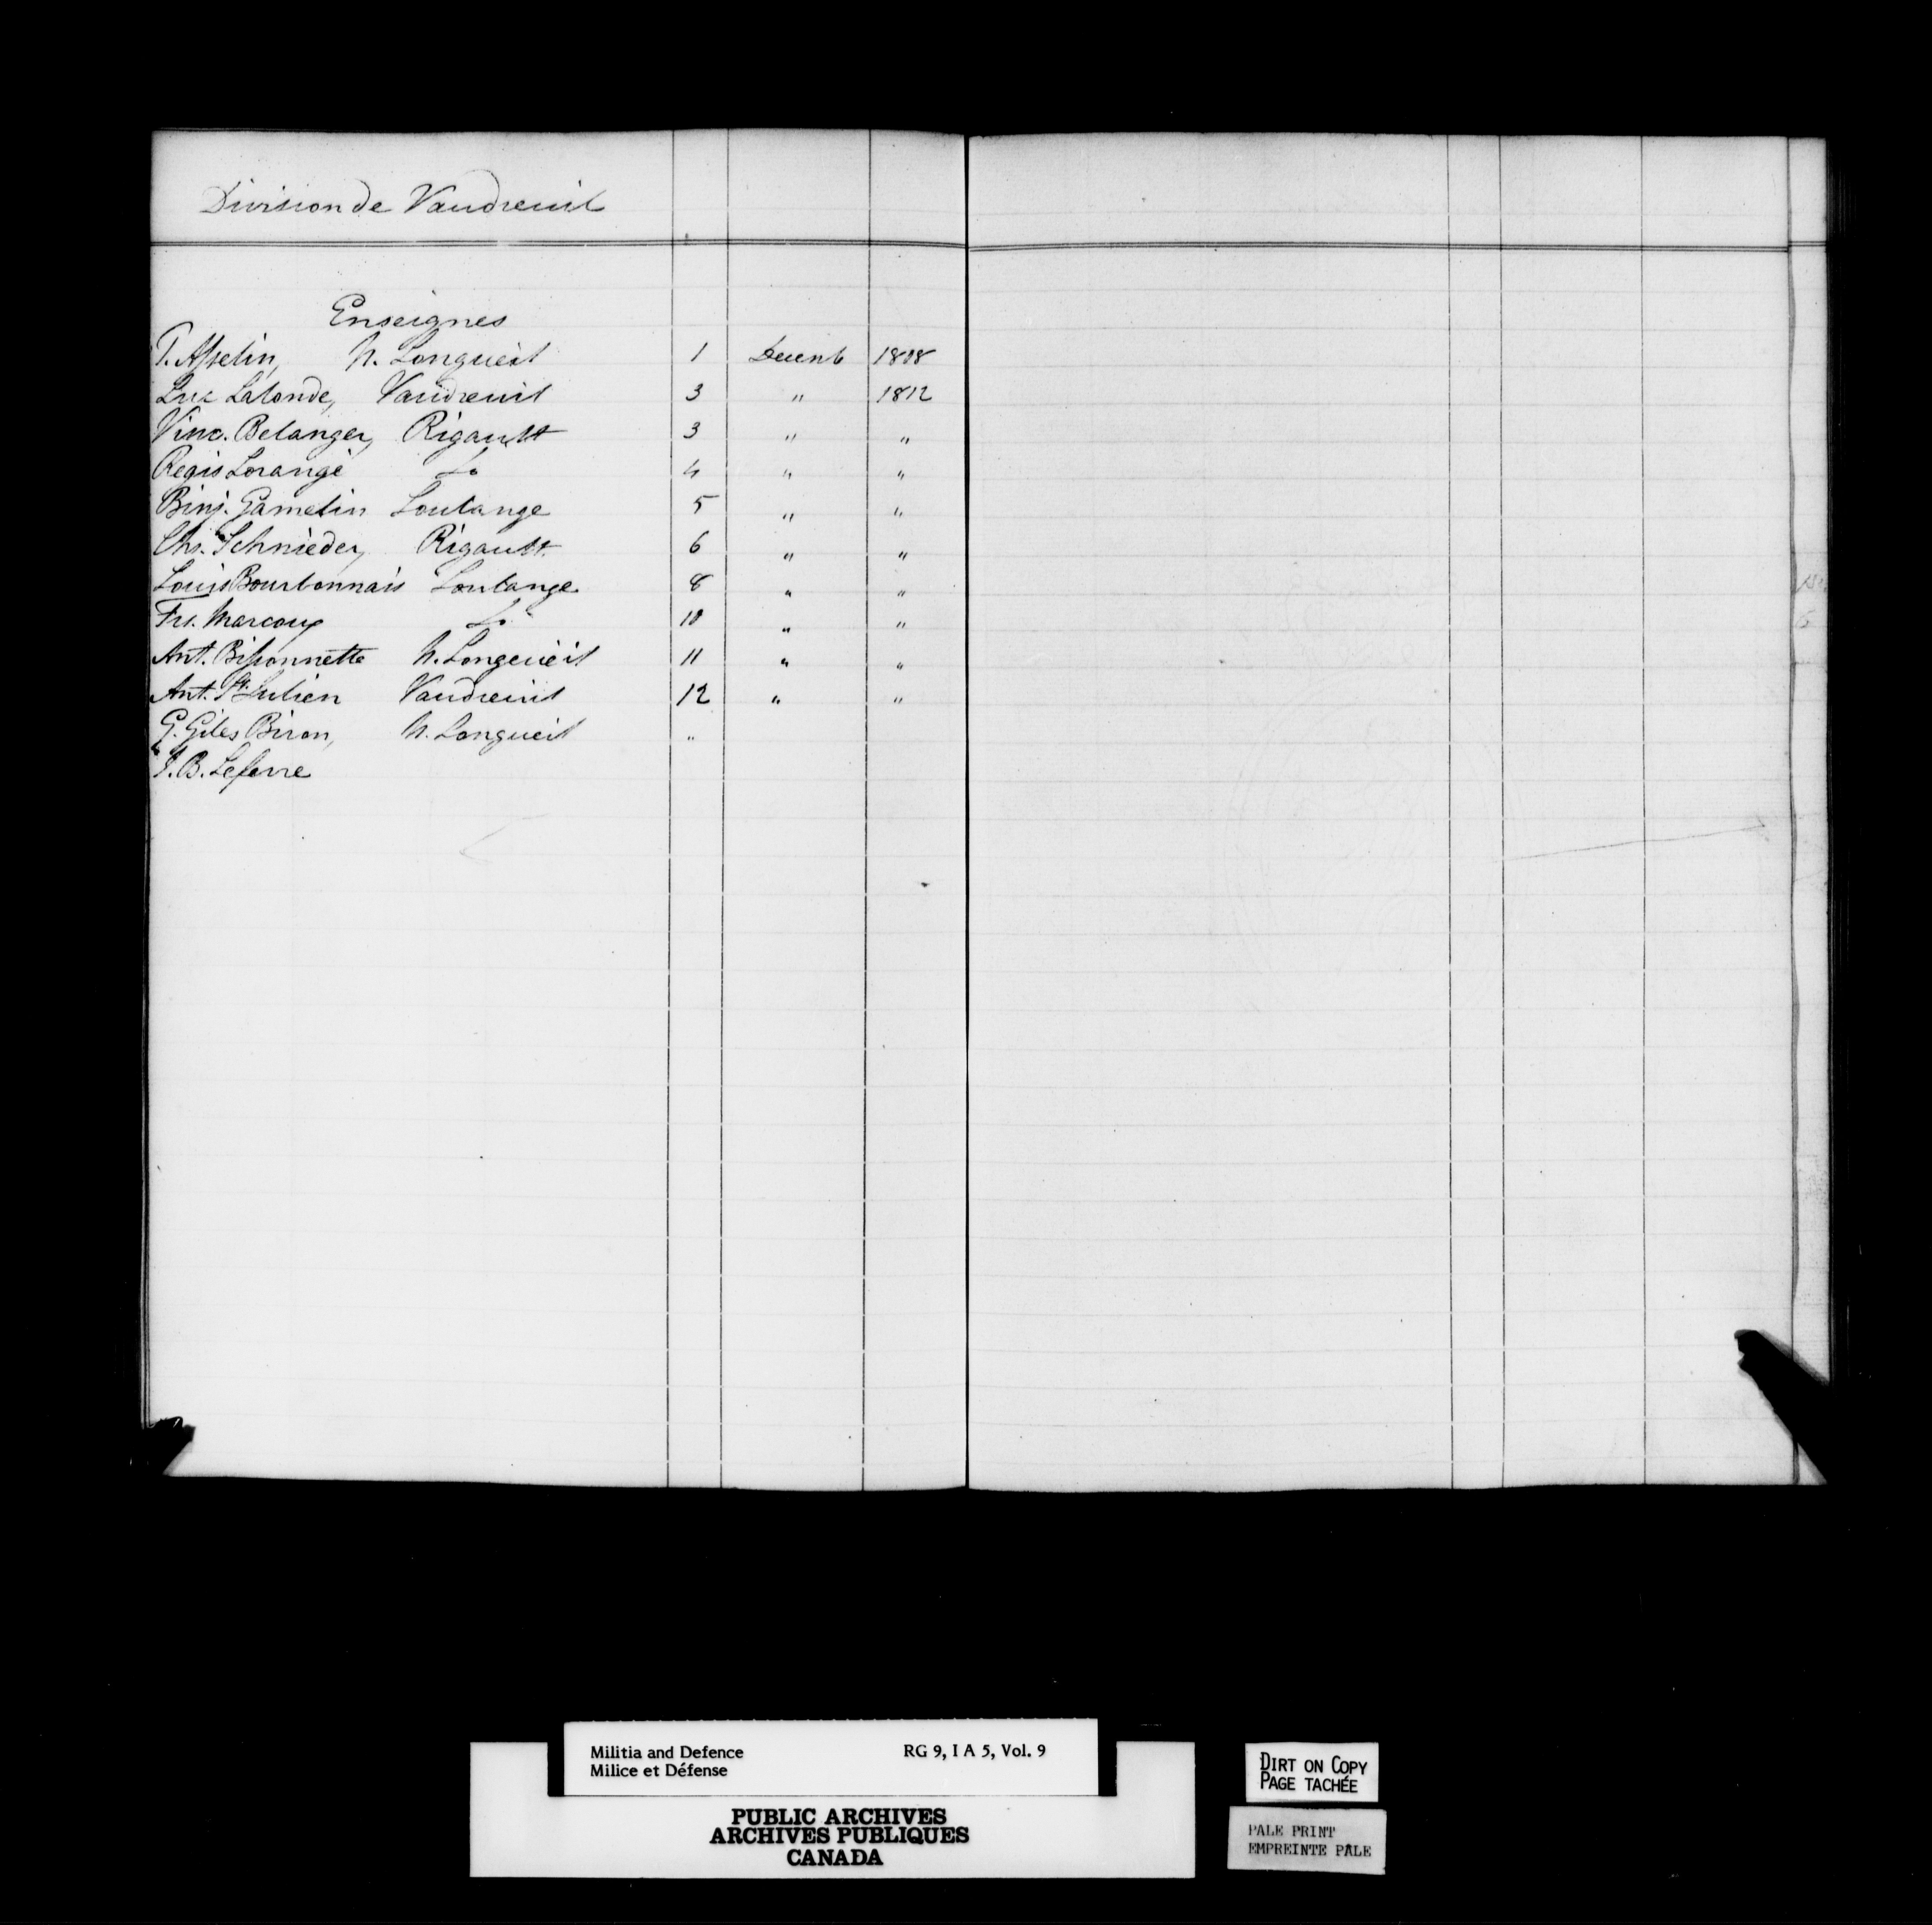 Division de Vaudreuil
Enseignes
T. Asselin, N. Longueil 1 Decemb 1808
Luc Lalonde, Vaudreuil 3 " 1812
Vinc. Belanger, Rigault 3 " "
Regis Lorange Do 4 " "
Binj. Gamelin Soulange 5 " "
Chs. Schnieder, Rigault 6 " "
Louis Bourbonnais Soulange 8 " "
Frs. Marcoux Do 10 " "
Ant. Bissonnette N. Longeueil 11 " "
Ant. St. Julien Vaudreuil 12 " "
G. Giles Biron, N. Longueil "
J. B. Lefevre
Militia and Defence RG 9, I A 5, Vol. 9
Milice et Défense
PUBLIC ARCHIVES
ARCHIVES PUBLIQUES
CANADA
DIRT ON COPY
PAGE TACHÉE
PALE PRINT
EMPREINTE PÂLE